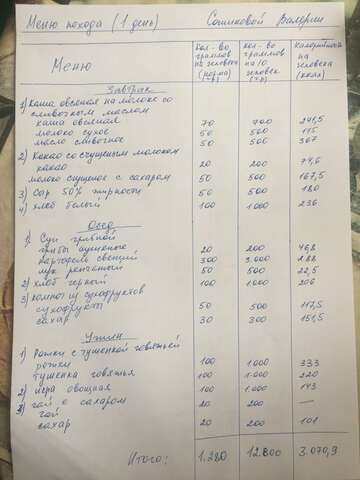 Меню похода (1 день) Сошиковой Валерии
Меню
Кол-во граммов на человека (норма) (гр)
кол-во граммов на 10 человек (гр)
Калорийность на человека (ккал)
Завтрак
1) Каша овсяная на молоке со
сливочным маслом
каша овсяная 70 700 241,5
молоко сухое 50 500 115
масло сливочное 50 500 367
2) Какао со сгущеным молоком
какао 20 200 74,6
молоко сгущеное с сахаром 50 500 167,5
3) Сыр 50% жирности 50 500 180
4) Хлеб белый 100 1000 236
Обед
1) Суп грибной
грибы сушеные 20 200 46,8
картофель свежий 300 3.000 288
лук репчатый 50 500 22,5
2) хлеб черный 100 1000 206
3) компот из сухофруктов
сухофрукты 50 500 117,5
сахар 30 300 151,5
Ужин
1) Рожки с тушенкой говяжьей
рожки 100 1.000 333
тушенка говяжья 100 1.000 220
2) икра овощная 100 1.000 143
3) чай с сахаром
чай 20 200 —
сахар 20 200 101
Итого: 1.280 12.800 3.070,9